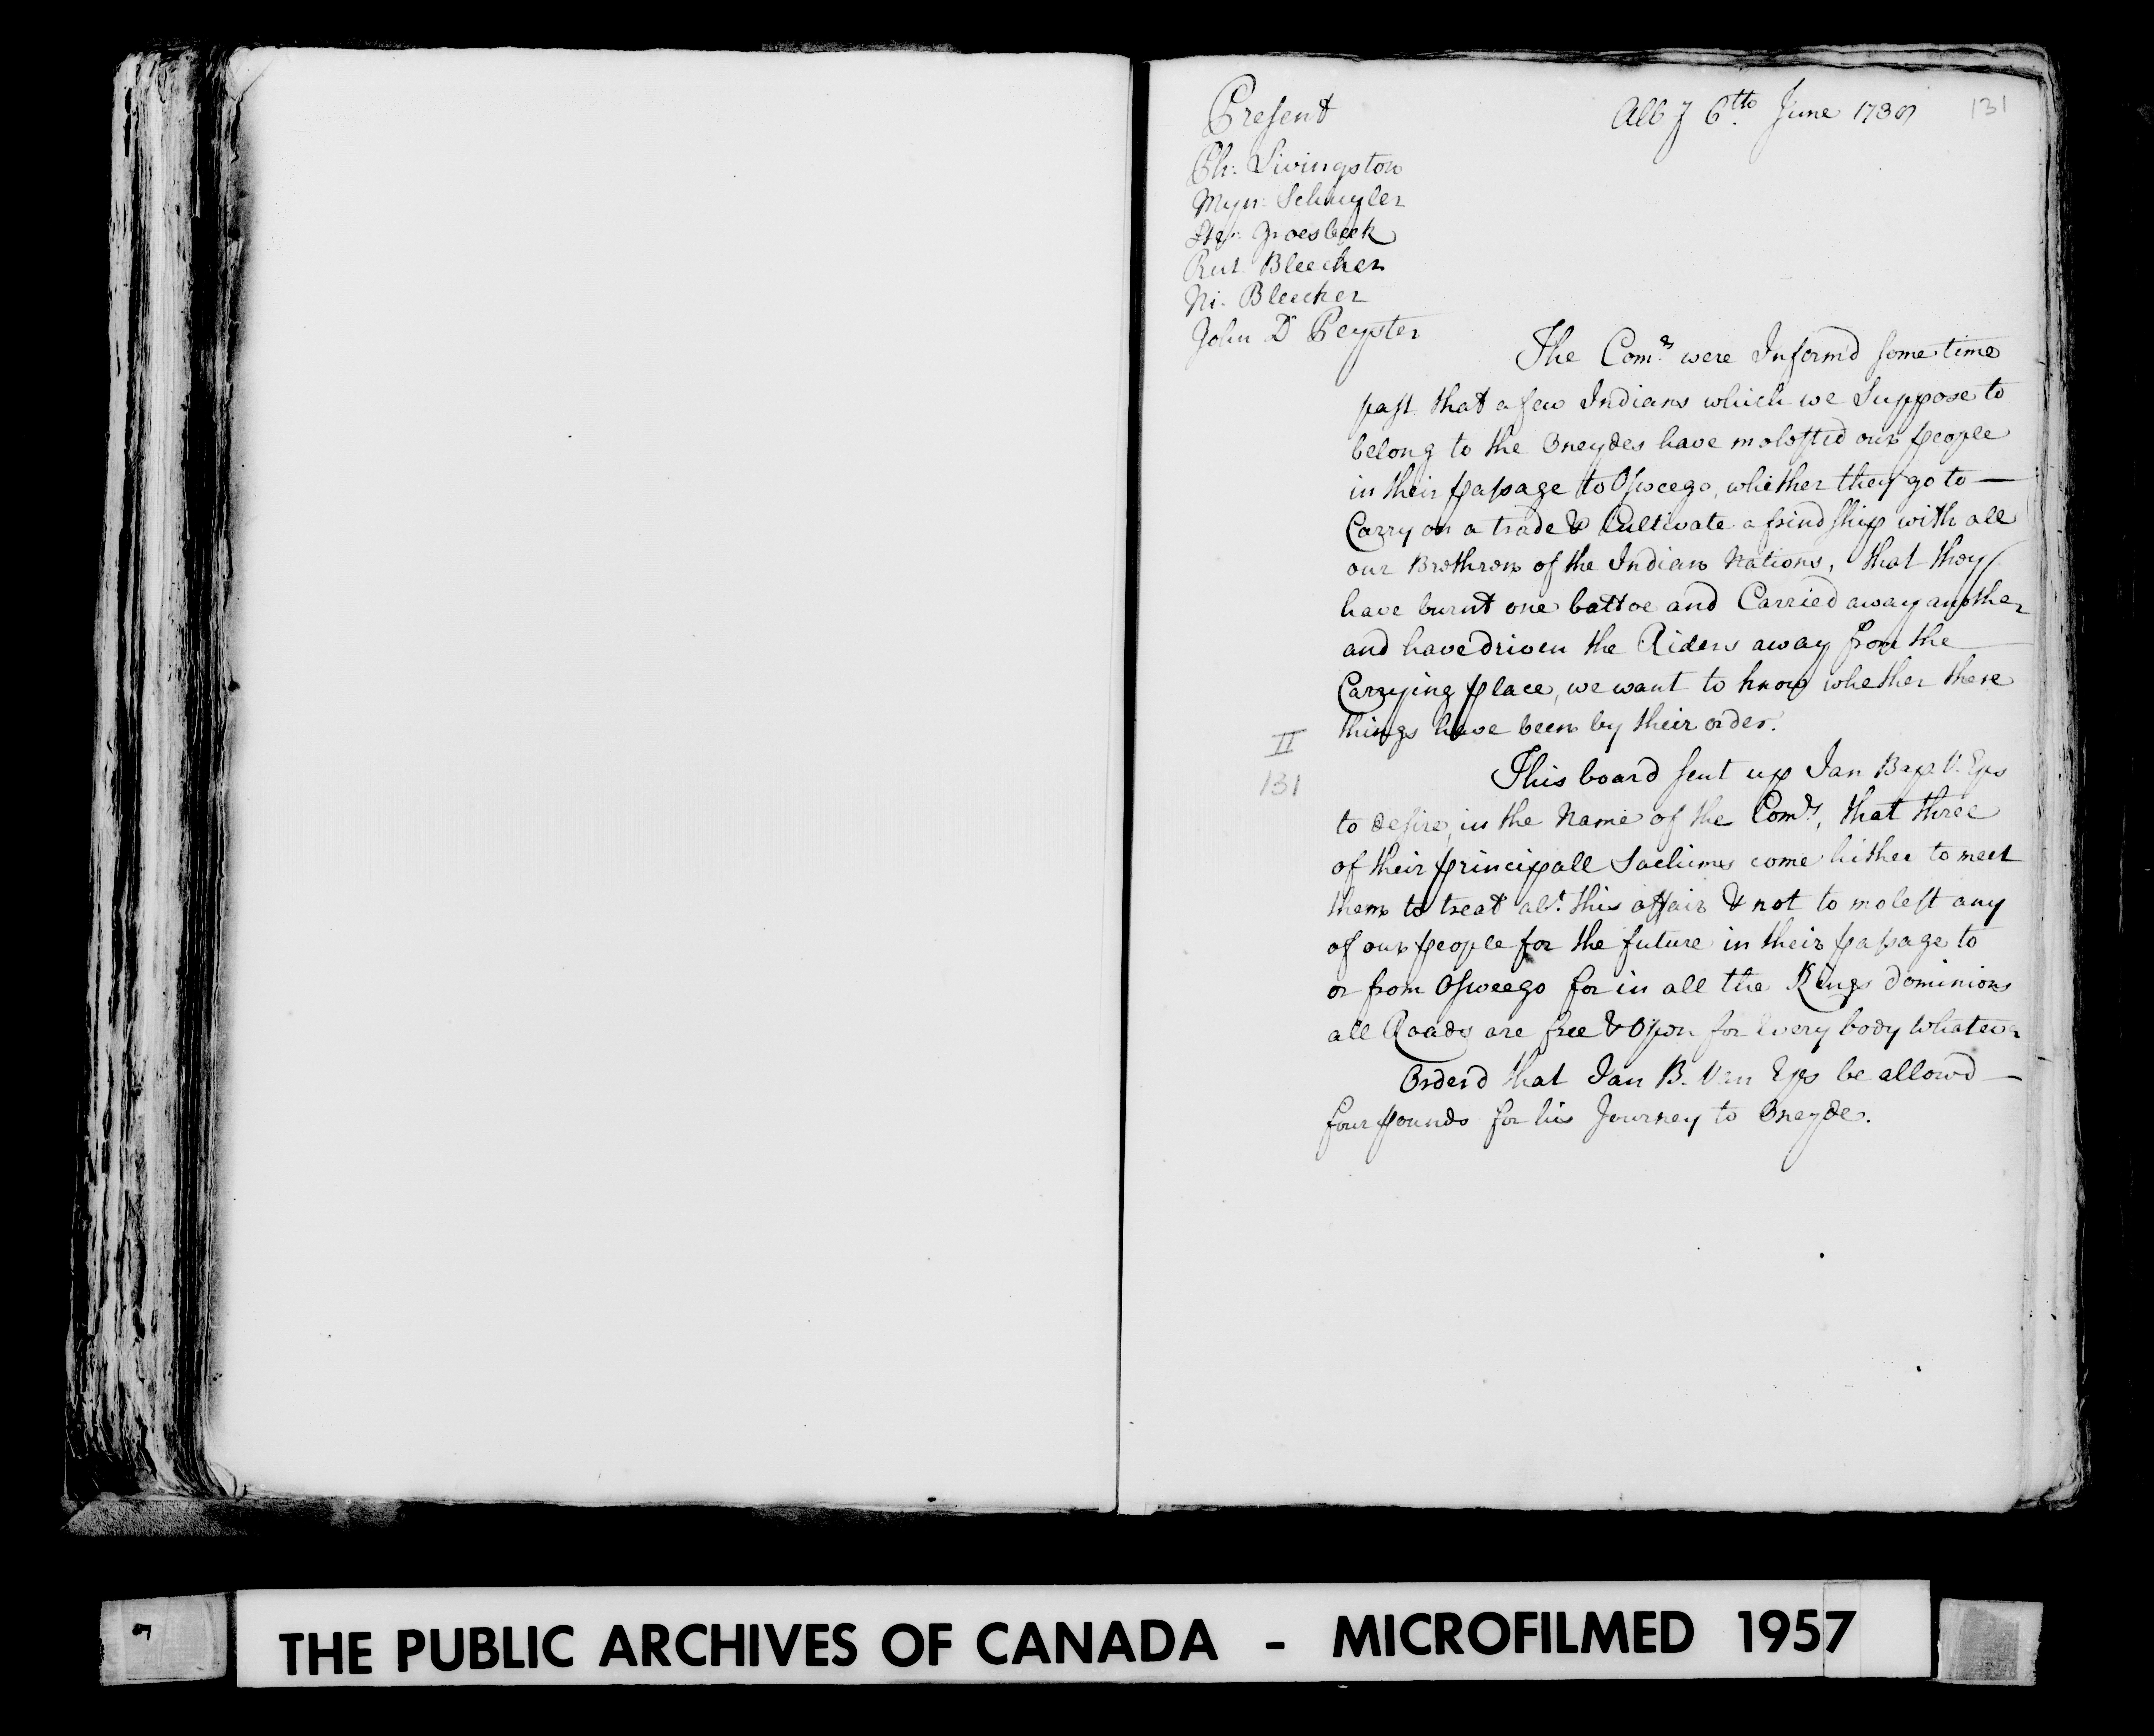 Present
Alb y 6th June 1739
131
Ph: Livingston
Myn: Schuyler
Ste: Groesbeek
Rut Bleecker
Ni: Bleecker
John D Peyster
The Comrs were Inform'd some time
past that a few Indians which we Suppose to
belong to the Oneydes have molested our people
in their passage to Osweego, whether they go to —
Carry on a trade & Cultivate a frindship with all
our Brethren of the Indian Nations, that they
have burnt one battoe and Carried away another
and have driven the Riders away from the
Carrying place, we want to know whether these
things have been by their order.
II
131
This board sent up Jan Bap V. Eps
to desire, in the Name of the Comrs, that three
of their principall Sachims come hither to meet
them to treat abt. this affair & not to molest any
of our people for the future in their passage to
or from Osweego for in all the Kings dominions
all Roads are free & Open for Every body whatever
Orderd that Jan B. Van Eps be allowd —
four pounds for his Journey to Oneyde.
THE PUBLIC ARCHIVES OF CANADA - MICROFILMED 1957